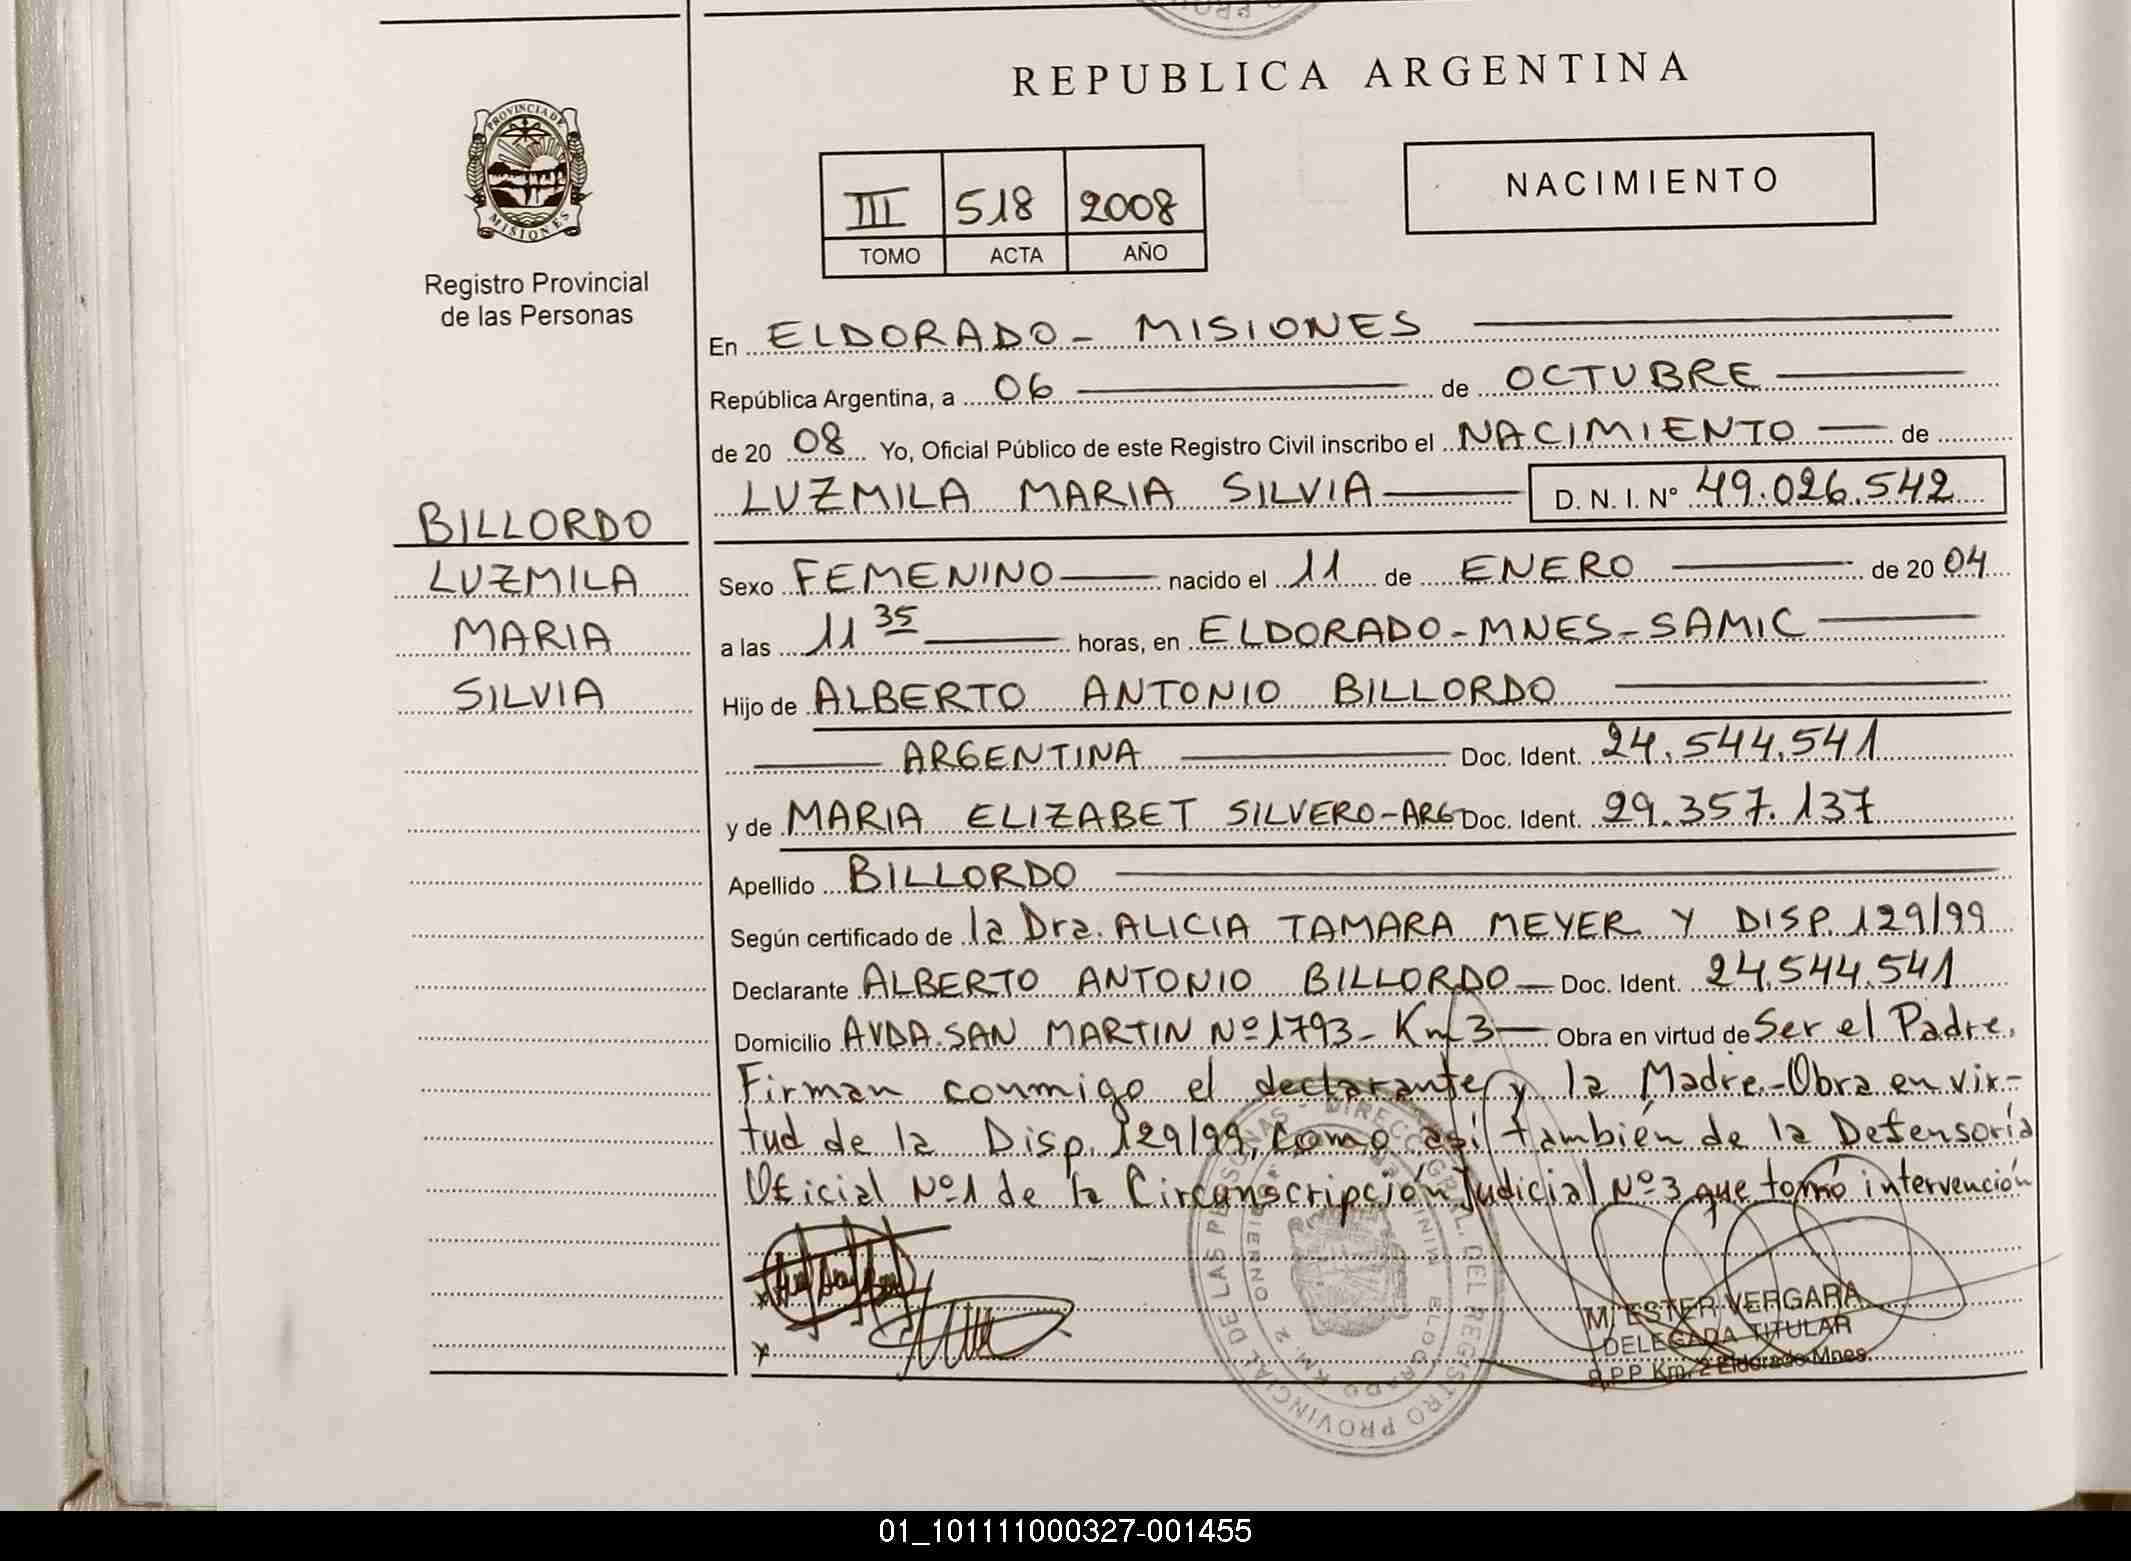 REPUBLICA ARGENTINA
PROVINCIA DE
MISIONES
Registro Provincial
de las Personas
III 518 2008
TOMO ACTA AÑO
NACIMIENTO
En ELDORADO - MISIONES
República Argentina, a 06 de OCTUBRE
de 20 08 Yo, Oficial Público de este Registro Civil inscribo el NACIMIENTO de
LUZMILA MARIA SILVIA D. N. I. N° 49.026.542
BILLORDO
LUZMILA
MARIA
SILVIA
Sexo FEMENINO nacido el 11 de ENERO de 20 04
a las 11 35 horas, en ELDORADO - MNES - SAMIC
Hijo de ALBERTO ANTONIO BILLORDO
ARGENTINA Doc. Ident. 24.544.541
y de MARIA ELIZABET SILVERO - ARG Doc. Ident. 29.357.137
Apellido BILLORDO
Según certificado de la Dra. ALICIA TAMARA MEYER Y DISP. 129/99
Declarante ALBERTO ANTONIO BILLORDO Doc. Ident. 24.544.541
Domicilio AVDA. SAN MARTIN Nº 1793 - Km 3 Obra en virtud de Ser el Padre.
Firman conmigo el declarante y la Madre.-Obra en vir-
tud de la Disp. 129/99, como así también de la Defensoría
Oficial Nº 1 de la Circunscripción Judicial Nº 3 que tomó intervención
x
x
M. ESTER VERGARA
DELEGADA TITULAR
R.P.P. Km. 2 Eldorado Mnes.
DIRECC. GRAL. DEL REGISTRO PROVINCIAL DE LAS PERSONAS
ELDORADO KM. 2
01_101111000327-001455